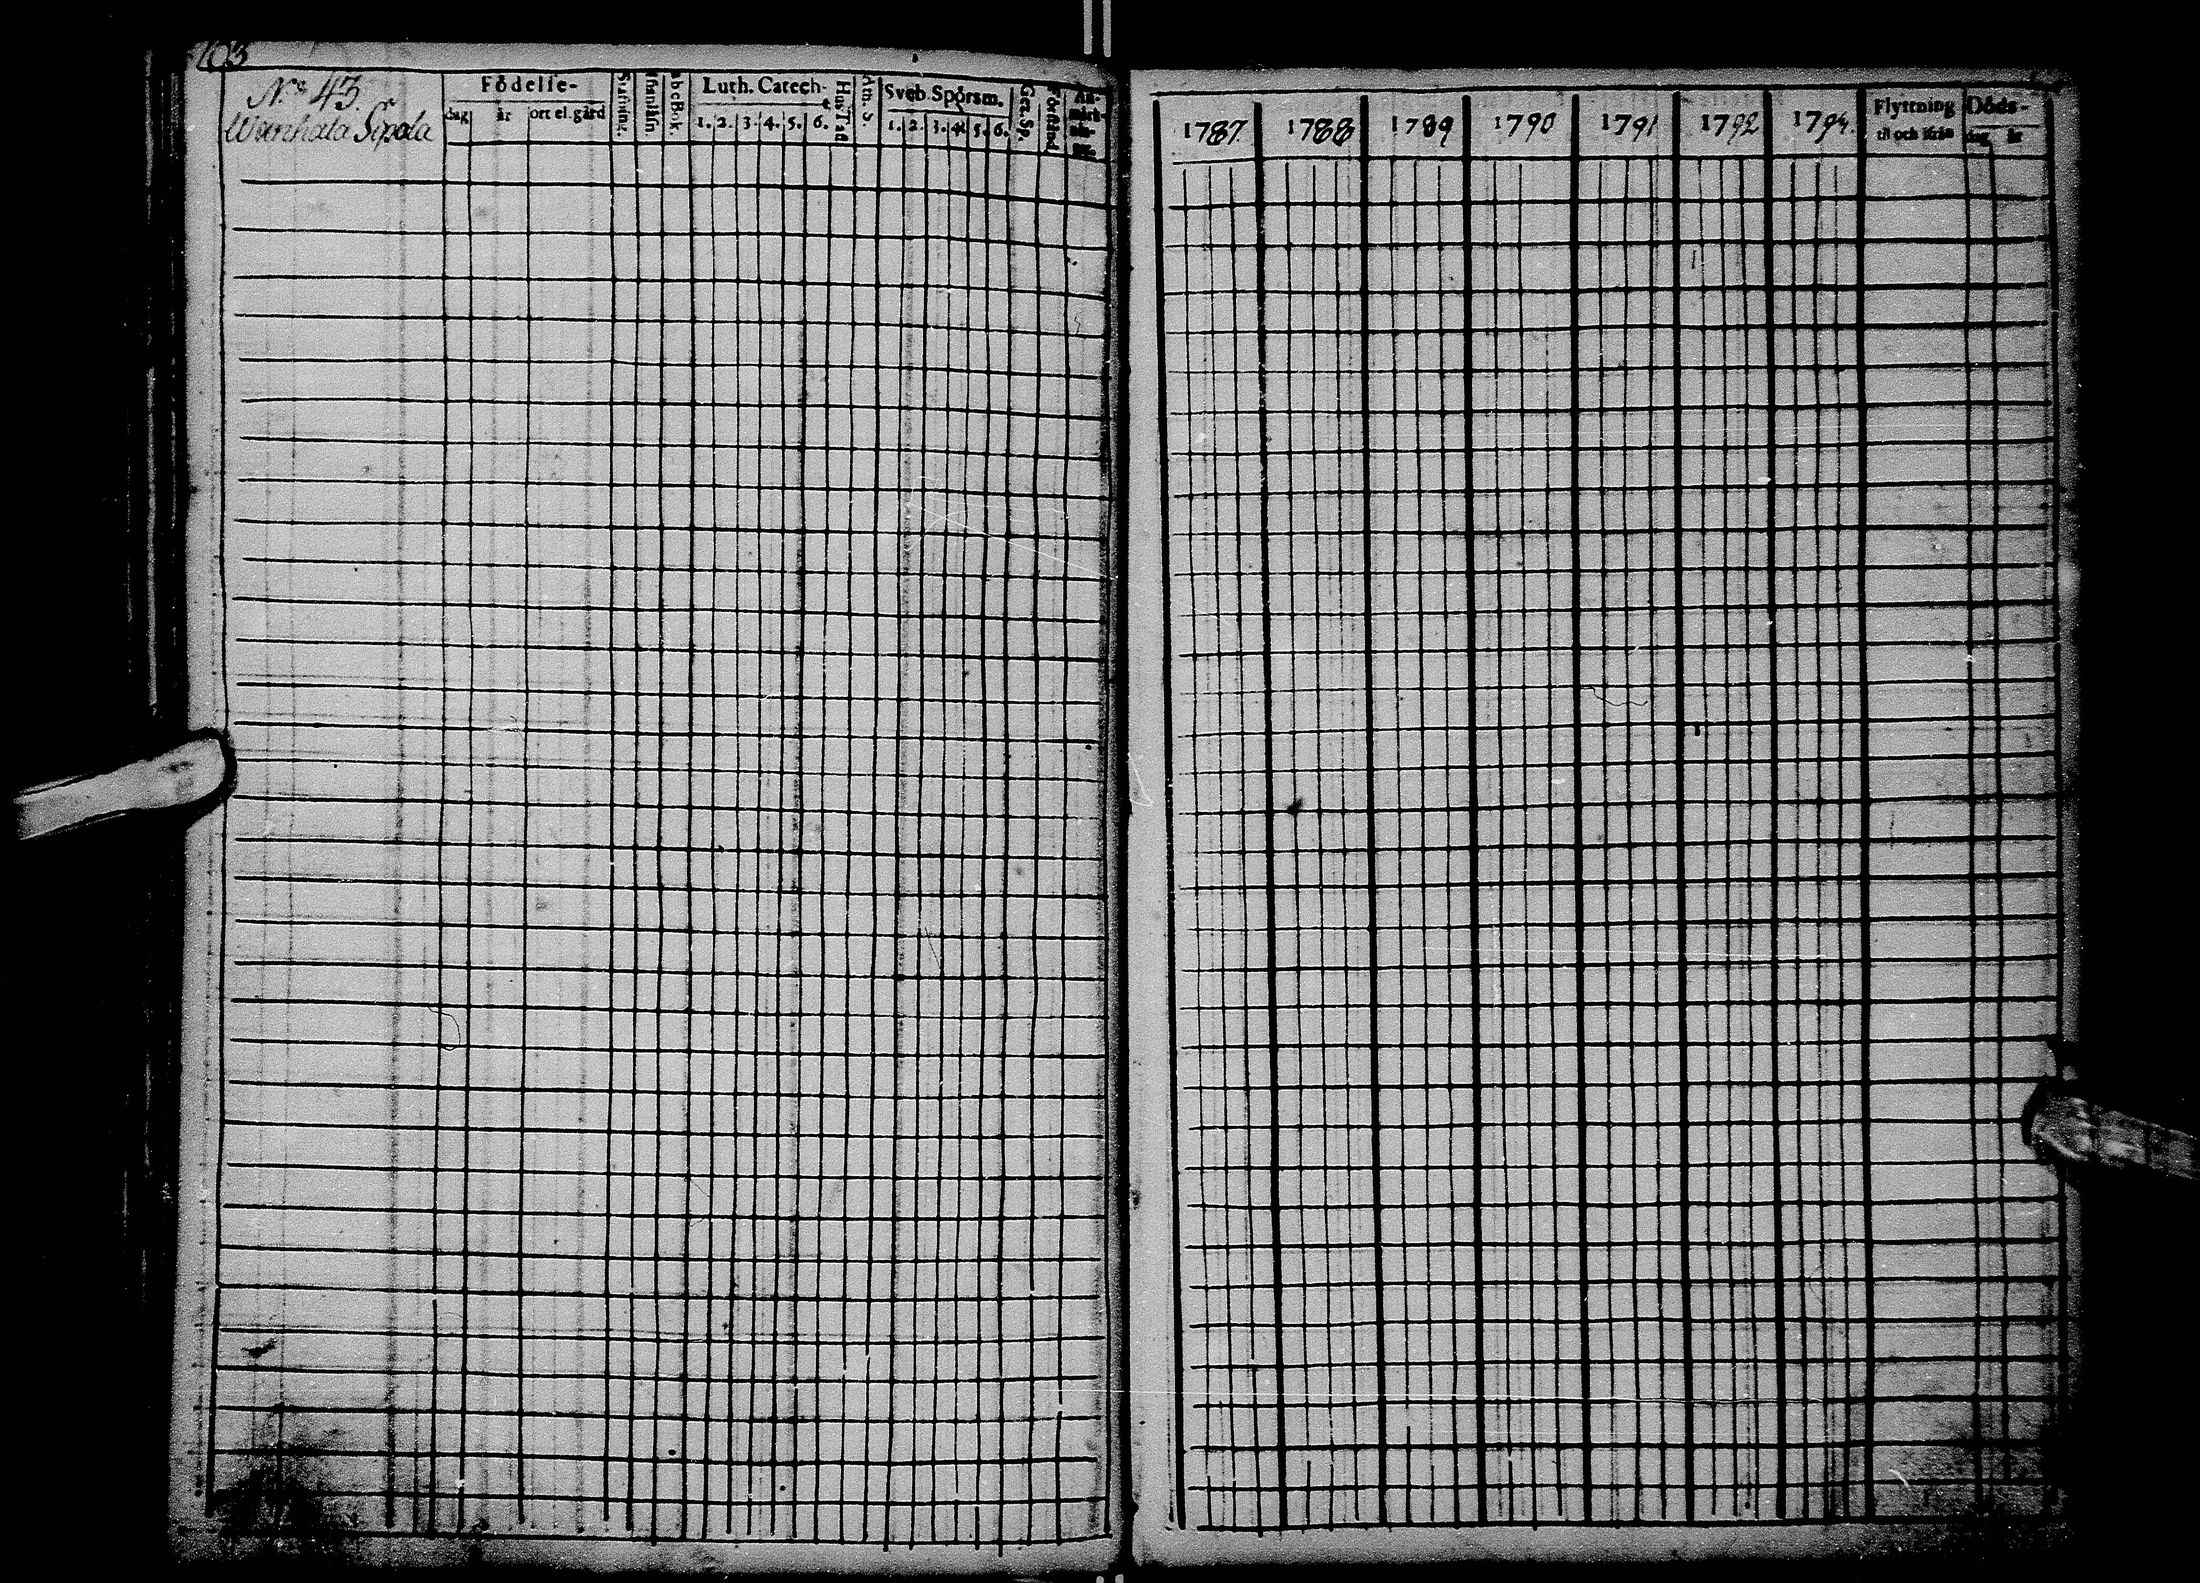 103
N:o 43.
Wanhala Sipola
Födelse-
dag år ort el. gård
Stafning.
Abc Bok
Luth. Catech.
1. 2. 3. 4. 5. 6.
Hus Tafl
Ath. S.
Sveb. Spörsm.
1. 2. 3. 4. 5. 6.
Gez. Sp.
Förstånd
An-
märk-
nin-
gar.
1787. 1788 1789 1790 1791 1792 1794.
Flyttning
til och ifrån
Döds-
dag år